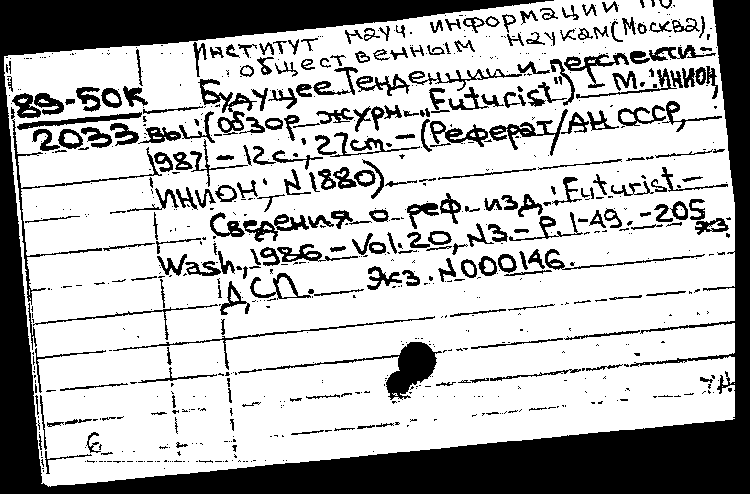 Институт науч. информации по
общественным наукам (Москва),
89-50к
2033
Будущее: Тенденции и перспекти-
вы: (Обзор журн. „Futurist"). - М.: ИНИОН,
1987. - 12с.; 27см. - (Реферат/АН СССР,
ИНИОН; N1880).
Сведения о реф. изд.: Futurist. -
Wash., 1986. - Vol. 20, N3. - P. 1-49. - 205 экз.
ДСП. Экз. N000146.
6